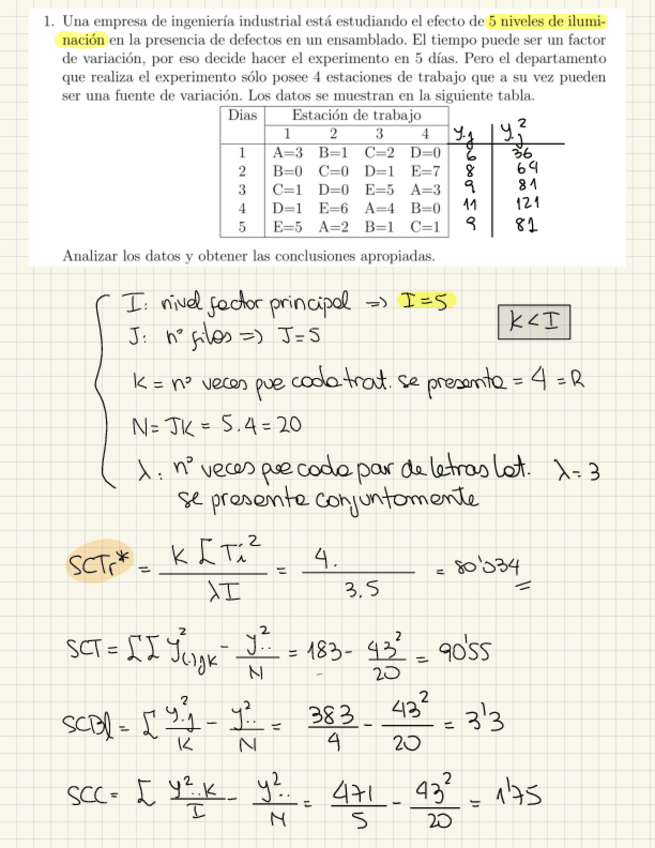 1. Una empresa de ingeniería industrial está estudiando el efecto de 5 niveles de ilumi-
nación en la presencia de defectos en un ensamblado. El tiempo puede ser un factor
de variación, por eso decide hacer el experimento en 5 días. Pero el departamento
que realiza el experimento sólo posee 4 estaciones de trabajo que a su vez pueden
ser una fuente de variación. Los datos se muestran en la siguiente tabla.
Dias Estación de trabajo
1 2 3 4 y.j y.j²
1 A=3 B=1 C=2 D=0 6 36
2 B=0 C=0 D=1 E=7 8 64
3 C=1 D=0 E=5 A=3 9 81
4 D=1 E=6 A=4 B=0 11 121
5 E=5 A=2 B=1 C=1 9 81
Analizar los datos y obtener las conclusiones apropiadas.
I: nivel factor principal => I=5
J: nº filas => J=5
K<I
K = nº veces que cada trat. se presenta = 4 = R
N= JK = 5.4 = 20
λ: nº veces que cada par de letras lat. λ=3
se presenta conjuntamente
SCTr* = K Σ Ti² / λI = 4. / 3.5 = 80'034
SCT = ΣΣ y²(i)jk - y².. / N = 183 - 43² / 20 = 90'55
SCBl = Σ y².j / K - y².. / N = 383 / 4 - 43² / 20 = 3'3
SCC = Σ y²..K / I - y².. / N = 471 / 5 - 43² / 20 = 1'75